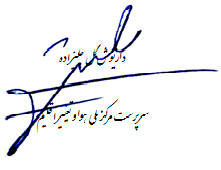 داریوش گل علیزاده
سرپرست مرکز ملی هوا و تغییر اقلیم